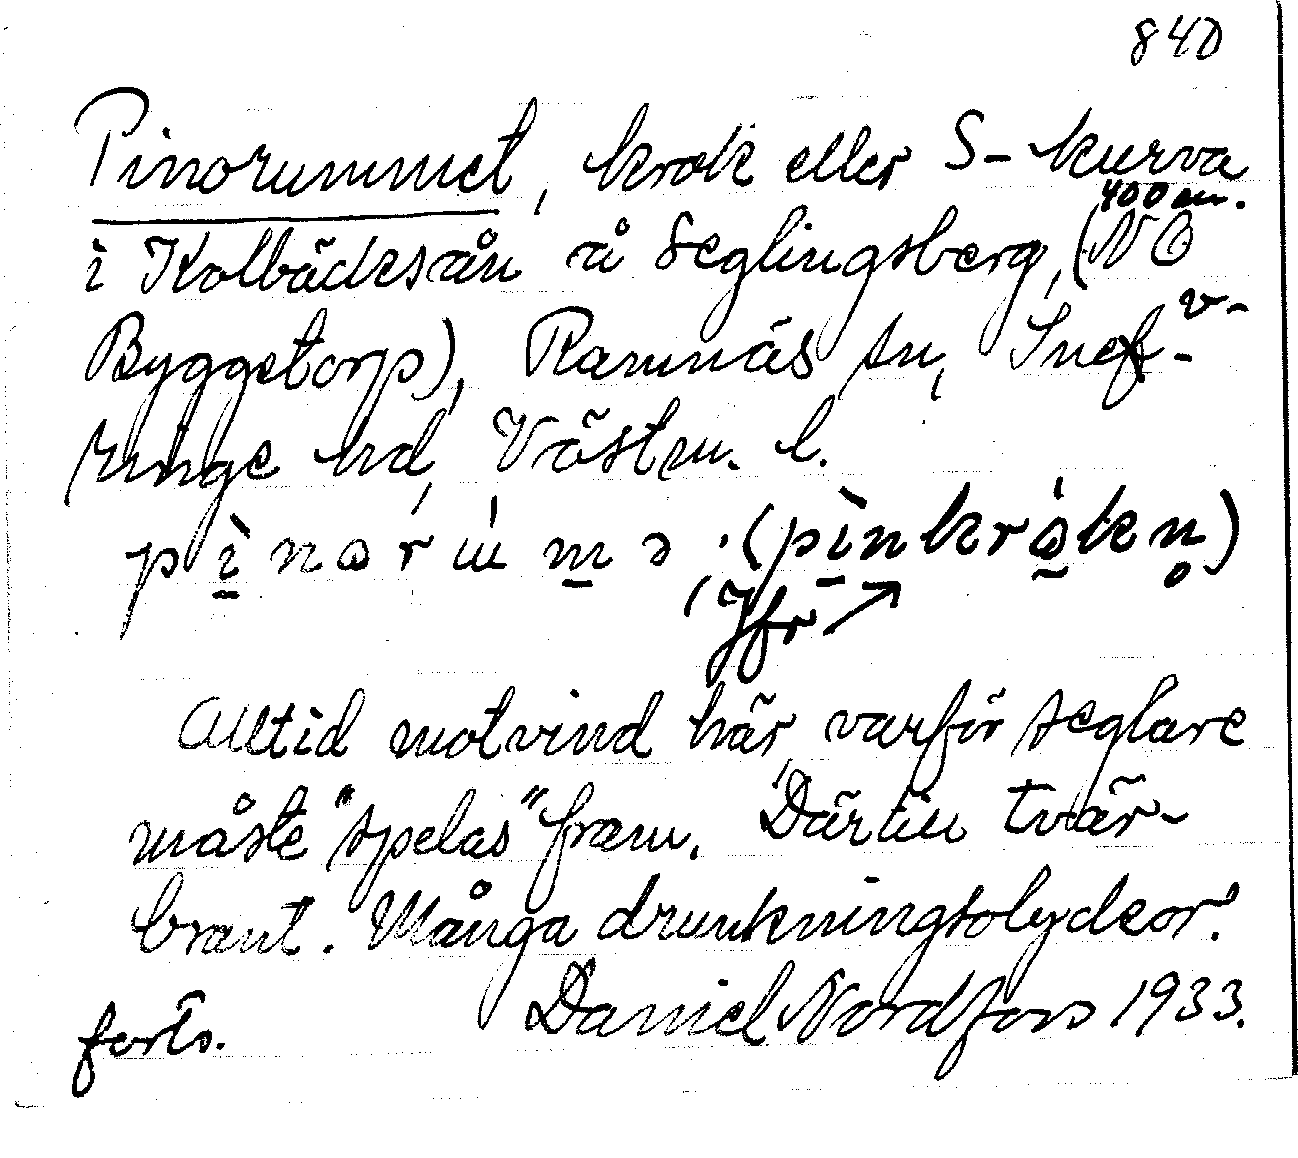 840
Pinorummet, krok eller S-kurva
400 m.
i Kolbäcksån å Seglingsberg, (NO
Byggetorp), Ramnäs sn, Snev-
ringe hd, Västm. l.
pìnorúmə. (pìnkrókn)
(Jfr ↗
Alltid motvind här, varför seglare
måste "spelas" fram. Därtill tvär-
brant. Många drunkningsolyckor.
Daniel Nordfors 1933.
forts.